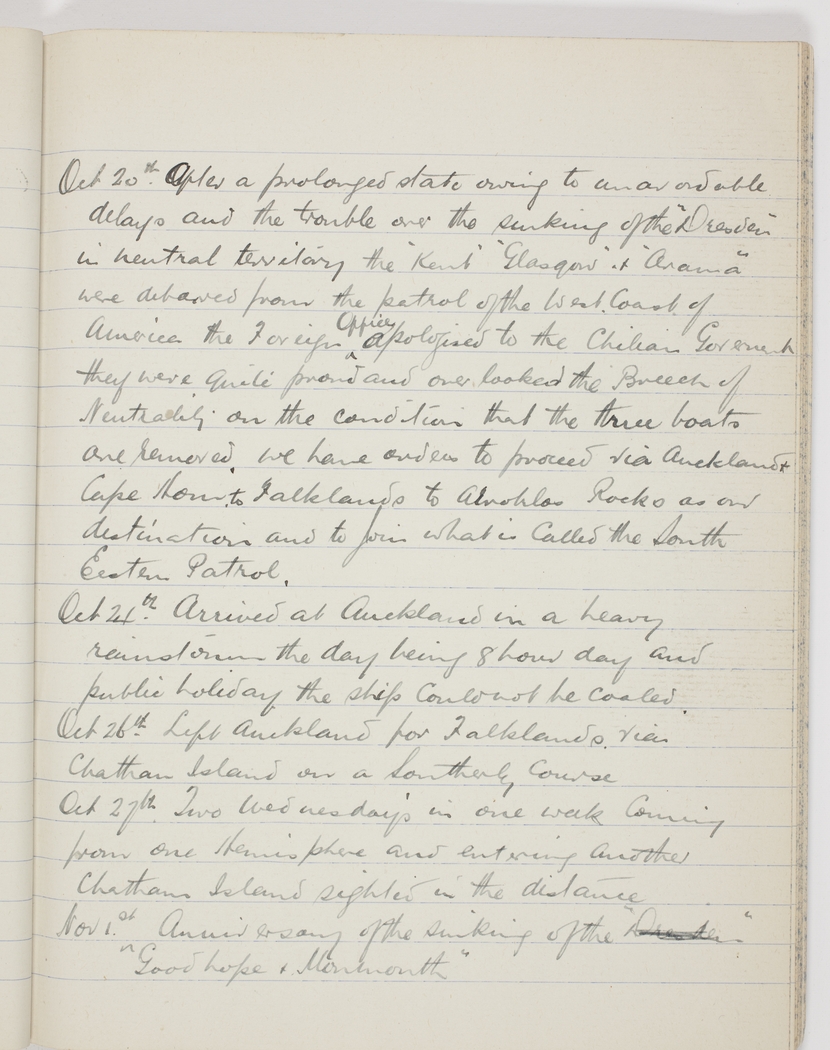 Oct 20th. After a prolonged state owing to unavoidable
delays and the trouble over the sinking of the "Dresden"
in neutral territory the "Kent" "Glasgow" & "Orama"
were debarred from the patrol of the West. Coast. of
America the Foreign Office apologised to the Chilian Goverment
they were quite proud and over looked the Breech of
Neutrality on the condition that the three boats
are removed, we have orders to proceed via Auckland &
Cape Horn to Falklands to Abrohlos Rocks as our
destination and to join what is Called the South
Eastern Patrol.
Oct 24th. Arrived at Auckland in a heavy
rainstorm the day being 8 hour day and
public holiday the ship Could not be coaled.
Oct 26th. Left Auckland for Falklands via
Chatham Island on a Southerly Course
Oct 27th. Two Wednesday's in one week Coming
from one Hemisphere and entering another
Chatham Island sighted in the distance
Nov 1.st Anniversary of the sinking of the "Dresden"
"Goodhope & Monmouth"